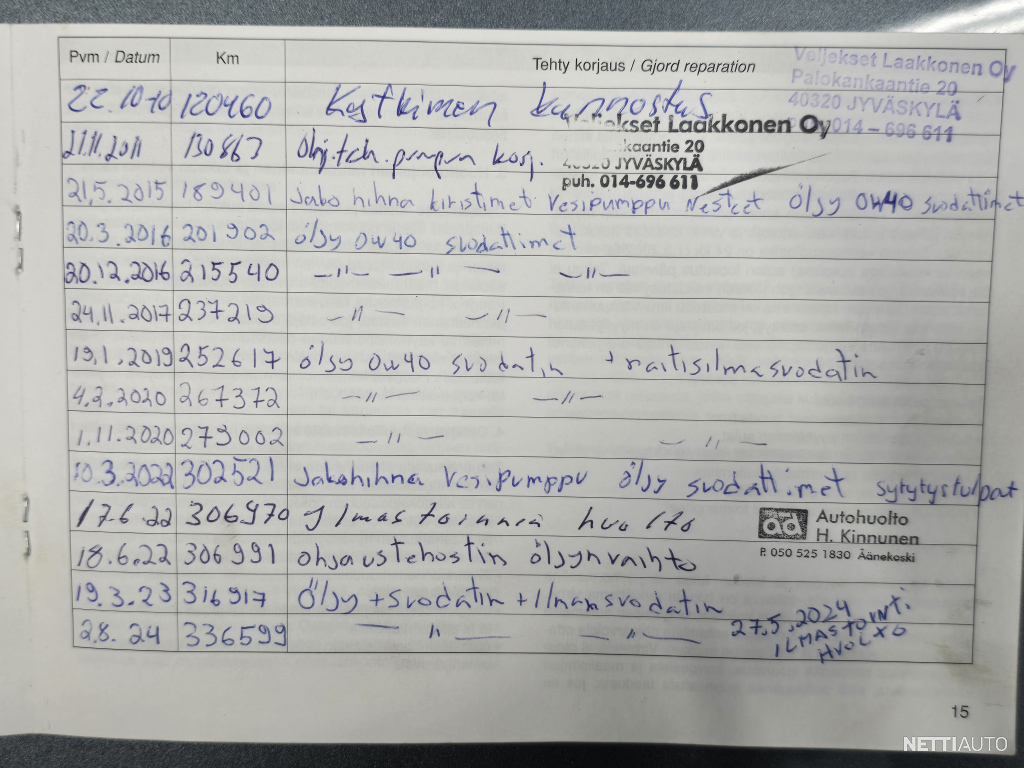 Pvm / Datum Km Tehty korjaus / Gjord reparation
Veljekset Laakkonen Oy
Palokankaantie 20
40320 JYVÄSKYLÄ
014 - 696 611
22.10.10 120460 Katkimen kunnostus
Veljekset Laakkonen Oy
kaantie 20
40320 JYVÄSKYLÄ
puh. 014-696 611
21.11.2011 130863 Ohj.teh. pumpun korj.
21.5.2015 189401 Jako hihna kiristimet vesipumppu Nesteet Öljy 0w40 suodattimet
20.3.2016 201902 öljy 0w40 suodattimet
20.12.2016 215540 —"— —"— —"—
24.11.2017 237219 —"— —"—
19.1.2019 252617 öljy 0w40 suodatin + raitisilmasuodatin
4.2.2020 267372 —"— —"—
1.11.2020 279002 —"— —"—
10.3.2022 302521 Jakohihna vesipumppu öljy suodattimet sytytystulpat
17.6.22 306970 Ilmastoinnin huolto
Autohuolto
H. Kinnunen
P. 050 525 1830 Äänekoski
18.6.22 306991 ohjaustehostin öljynvaihto
19.3.23 316917 Öljy + Suodatin + Ilmansuodatin
2.8.24 336599 —"— —"—
27.5.2024
ILMASTOINTI
HUOLTO
15
NETTIAUTO